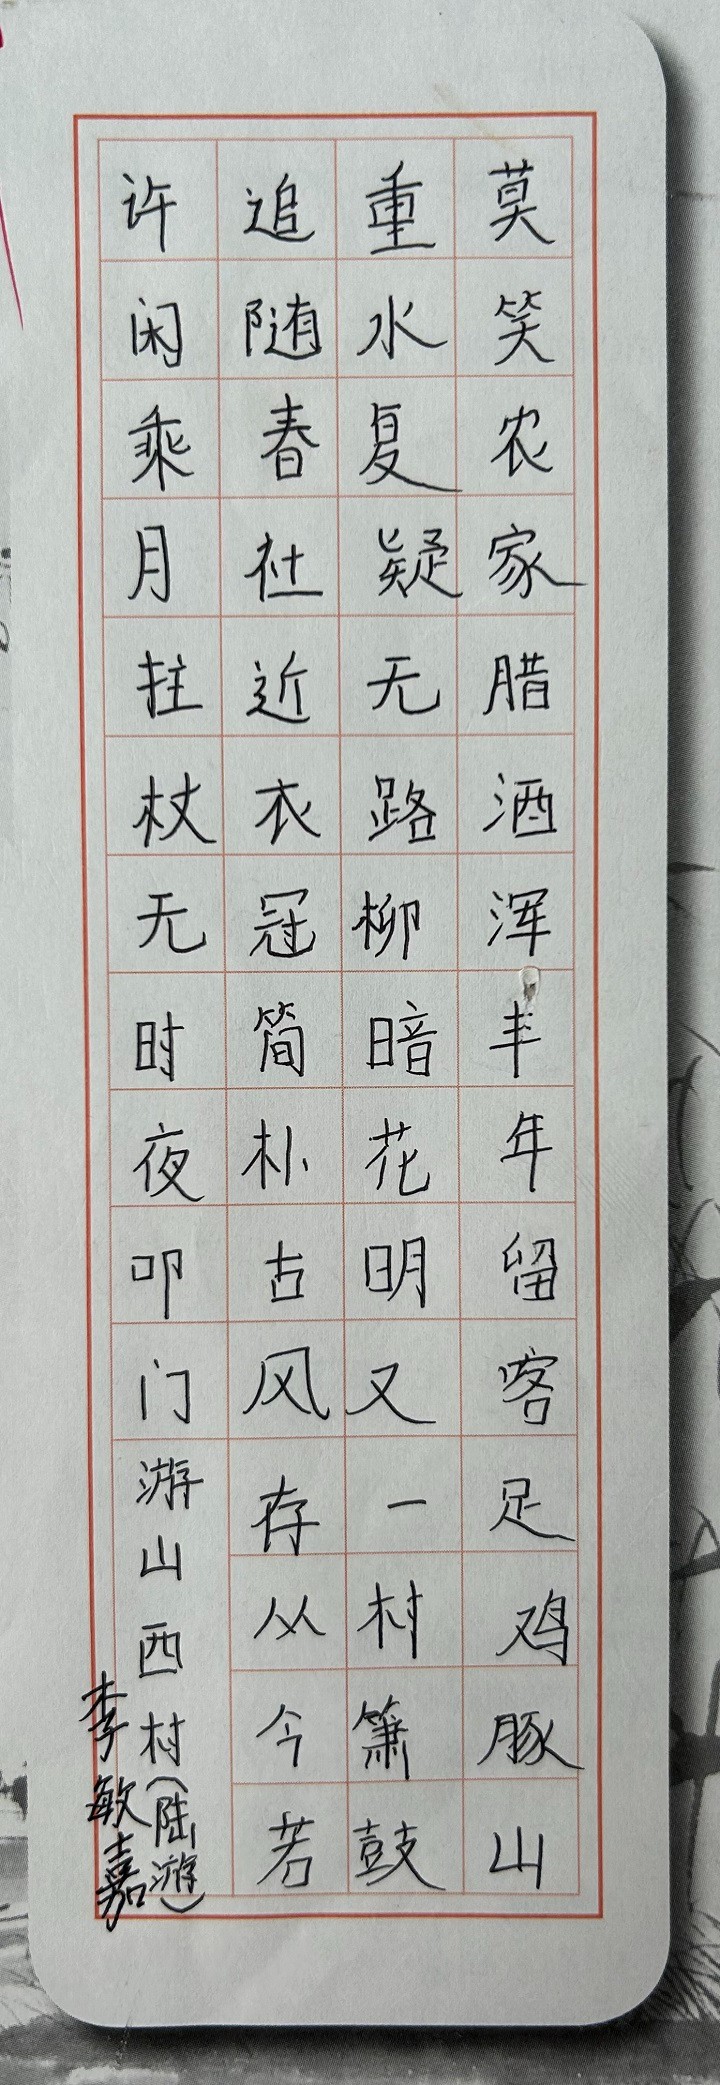 莫笑农家腊酒浑丰年留客足鸡豚山
重水复疑无路柳暗花明又一村箫鼓
追随春社近衣冠简朴古风存从今若
许闲乘月拄杖无时夜叩门
游山西村(陆游)
李敏嘉